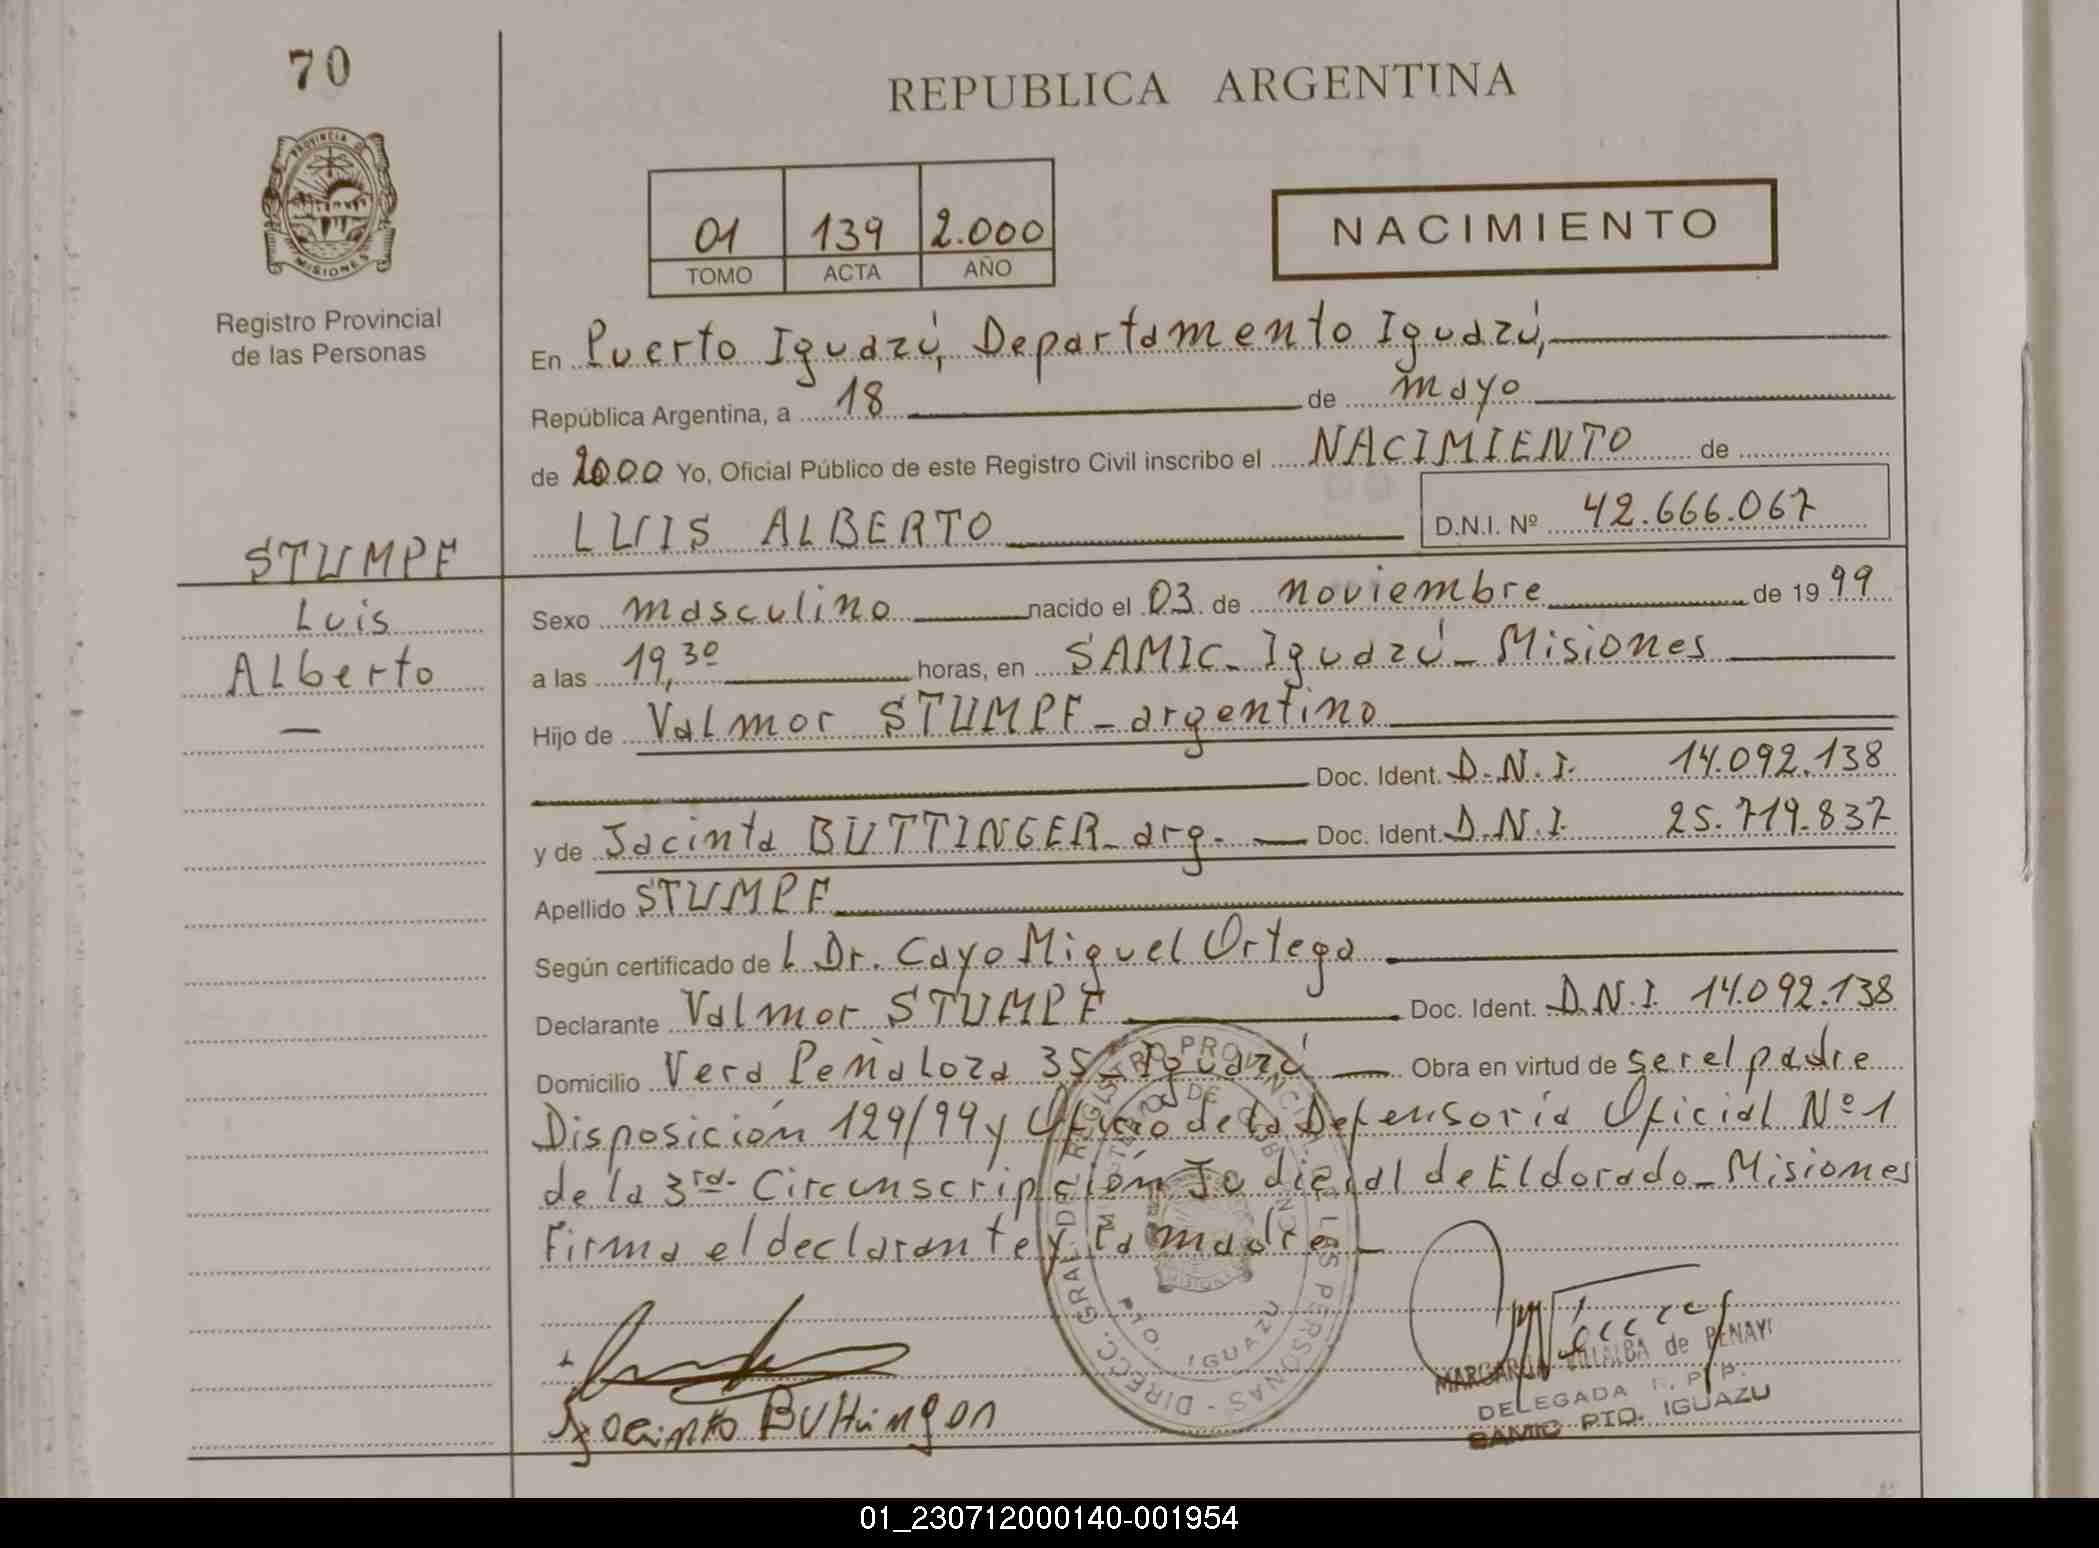 70
REPUBLICA ARGENTINA
PROVINCIA DE
MISIONES
Registro Provincial
de las Personas
01 139 2.000
TOMO ACTA AÑO
NACIMIENTO
En Puerto Iguazú, Departamento Iguazú,
República Argentina, a 18 de mayo
de 2000 Yo, Oficial Público de este Registro Civil inscribo el NACIMIENTO de
LUIS ALBERTO D.N.I. Nº 42.666.067
STUMPF
Luis
Alberto
Sexo masculino nacido el 03 de noviembre de 1999
a las 19,30 horas, en SAMIC_ Iguazú_ Misiones
Hijo de Valmor STUMPF_argentino
Doc. Ident. D.N.I. 14.092.138
y de Jacinta BUTTINGER_ arg. Doc. Ident. D.N.I. 25.719.837
Apellido STUMPF
Según certificado de L Dr. Cayo Miguel Ortega
Declarante Valmor STUMPF Doc. Ident. D.N.I. 14.092.138
Domicilio Vera Peñaloza 35_Iguazú Obra en virtud de ser el padre
Disposición 129/99 y Oficio de la Defensoría Oficial Nº 1
de la 3ra. Circunscripción Judicial de Eldorado_Misiones
Firma el declarante y la madre_
DIRECC. GRAL. DEL REGISTRO PROVINCIAL DE LAS PERSONAS -
MINISTERIO DE GOBIERNO
MISIONES
PTO. IGUAZU
Jacinta Buttinger
MARGARITA VILLALBA de PENAYI
DELEGADA R. P. P.
SAMIC PTO. IGUAZU
01_230712000140-001954